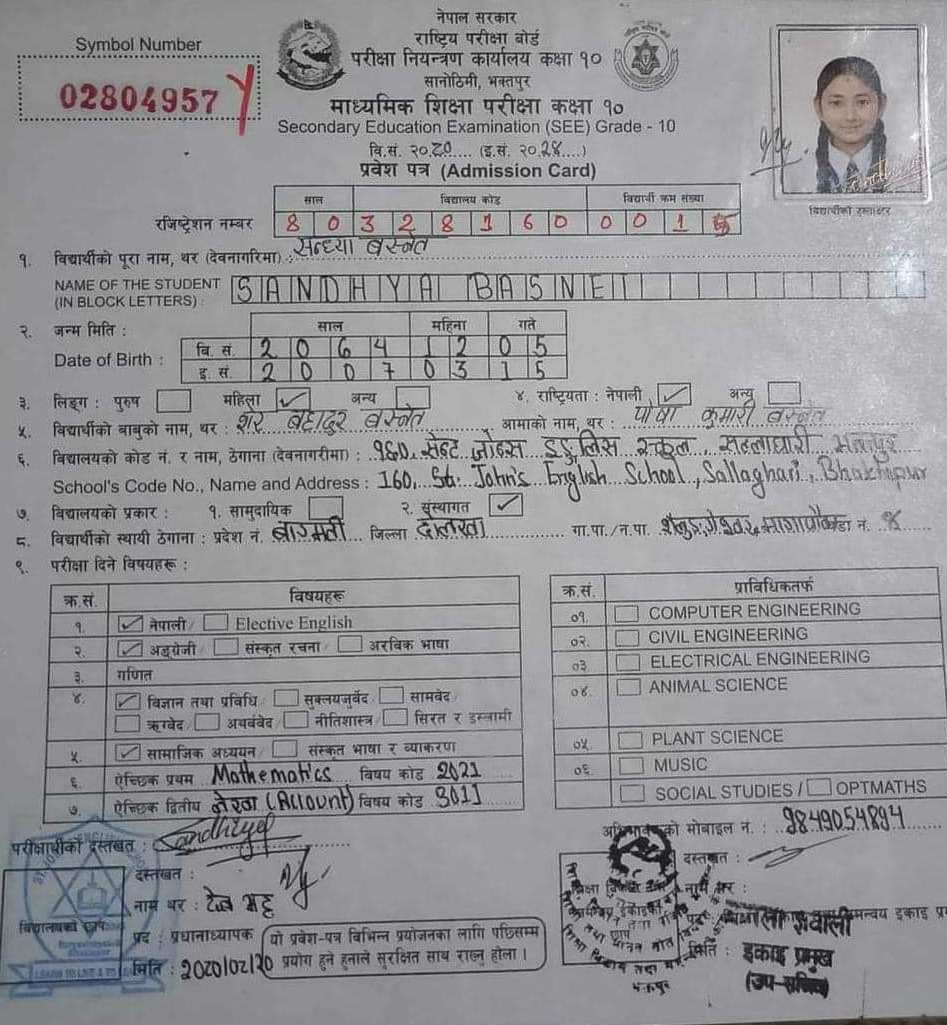 नेपाल सरकार
राष्ट्रिय परीक्षा बोर्ड
परीक्षा नियन्त्रण कार्यालय कक्षा १०
सानोठिमी, भक्तपुर
माध्यमिक शिक्षा परीक्षा कक्षा १०
Secondary Education Examination (SEE) Grade - 10
वि.सं. २०८०.... (इ.सं. २०.२४....)
प्रवेश पत्र (Admission Card)
Symbol Number
02804957
विद्यार्थीको दस्तखत
साल विद्यालय कोड विद्यार्थी क्रम संख्या
रजिष्ट्रेशन नम्बर 8 0 3 2 8 1 6 0 0 0 1
१. विद्यार्थीको पूरा नाम, थर (देवनागरिमा) : सन्ध्या बस्नेत
NAME OF THE STUDENT SANDHYA BASNET
(IN BLOCK LETTERS) :
२. जन्म मिति : साल महिना गते
Date of Birth : वि. सं. 2 0 6 4 1 2 0 5
इ. सं. 2 0 0 7 0 3 1 5
३. लिङ्ग : पुरुष महिला ✓ अन्य ४. राष्ट्रियता : नेपाली ✓ अन्य
५. विद्यार्थीको बाबुको नाम, थर : शेर बहादुर बस्नेत आमाको नाम, थर : कुमारी बस्नेत
६. विद्यालयको कोड नं. र नाम, ठेगाना (देवनागरीमा) : १६०, सेन्ट जोन्स इङ्लिस स्कूल, सल्लाघारी, भक्तपुर
School's Code No., Name and Address : 160, St. John's English School, Sallaghari, Bhaktapur
७. विद्यालयको प्रकार : १. सामुदायिक २. संस्थागत ✓
८. विद्यार्थीको स्थायी ठेगाना : प्रदेश नं. बागमती जिल्ला दोलखा गा.पा./न.पा. वडा नं. ४
९. परीक्षा दिने विषयहरू :
क्र.सं. विषयहरू
१. ✓ नेपाली/ Elective English
२. ✓ अङ्ग्रेजी/ संस्कृत रचना/ अरबिक भाषा
३. गणित
४. ✓ विज्ञान तथा प्रविधि/ शुक्लयजुर्वेद/ सामवेद/
ऋग्वेद/ अथर्ववेद/ नीतिशास्त्र/ सिरत र इस्लामी
५. ✓ सामाजिक अध्ययन/ संस्कृत भाषा र व्याकरण
६. ऐच्छिक प्रथम Mathematics विषय कोड 2021
७. ऐच्छिक द्वितीय लेखा (Account) विषय कोड 3011
क्र.सं. प्राविधिकतर्फ
०१. COMPUTER ENGINEERING
०२. CIVIL ENGINEERING
०३. ELECTRICAL ENGINEERING
०४. ANIMAL SCIENCE
०५. PLANT SCIENCE
०६. MUSIC
SOCIAL STUDIES / OPTMATHS
परीक्षार्थीको दस्तखत : Sandhya
दस्तखत :
नाम थर : टेक भट्ट
पद : प्रधानाध्यापक
मिति : 2080/02/20
विद्यालयको छाप
यो प्रवेश-पत्र विभिन्न प्रयोजनका लागि पछिसम्म
प्रयोग हुने हुनाले सुरक्षित साथ राख्नु होला ।
अभिभावकको मोबाइल नं. : 9849054894
दस्तखत :
नाम थर :
ज्ञवाली
मिति : इकाइ प्रमुख
(उप-सचिव)